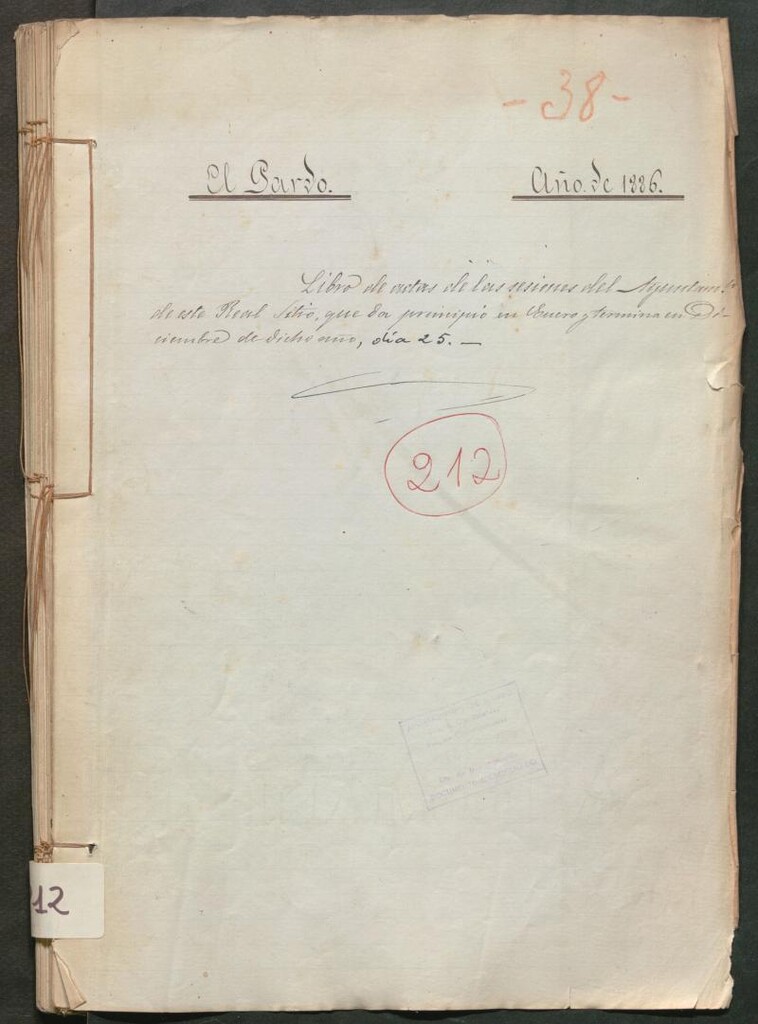 - 38 -
El Pardo. Año de 1886.
Libro de actas de las sesiones del Ayuntam.to
de este Real Sitio, que da principio en Enero y termina en Di-
ciembre de dicho año, día 25. —
212
12